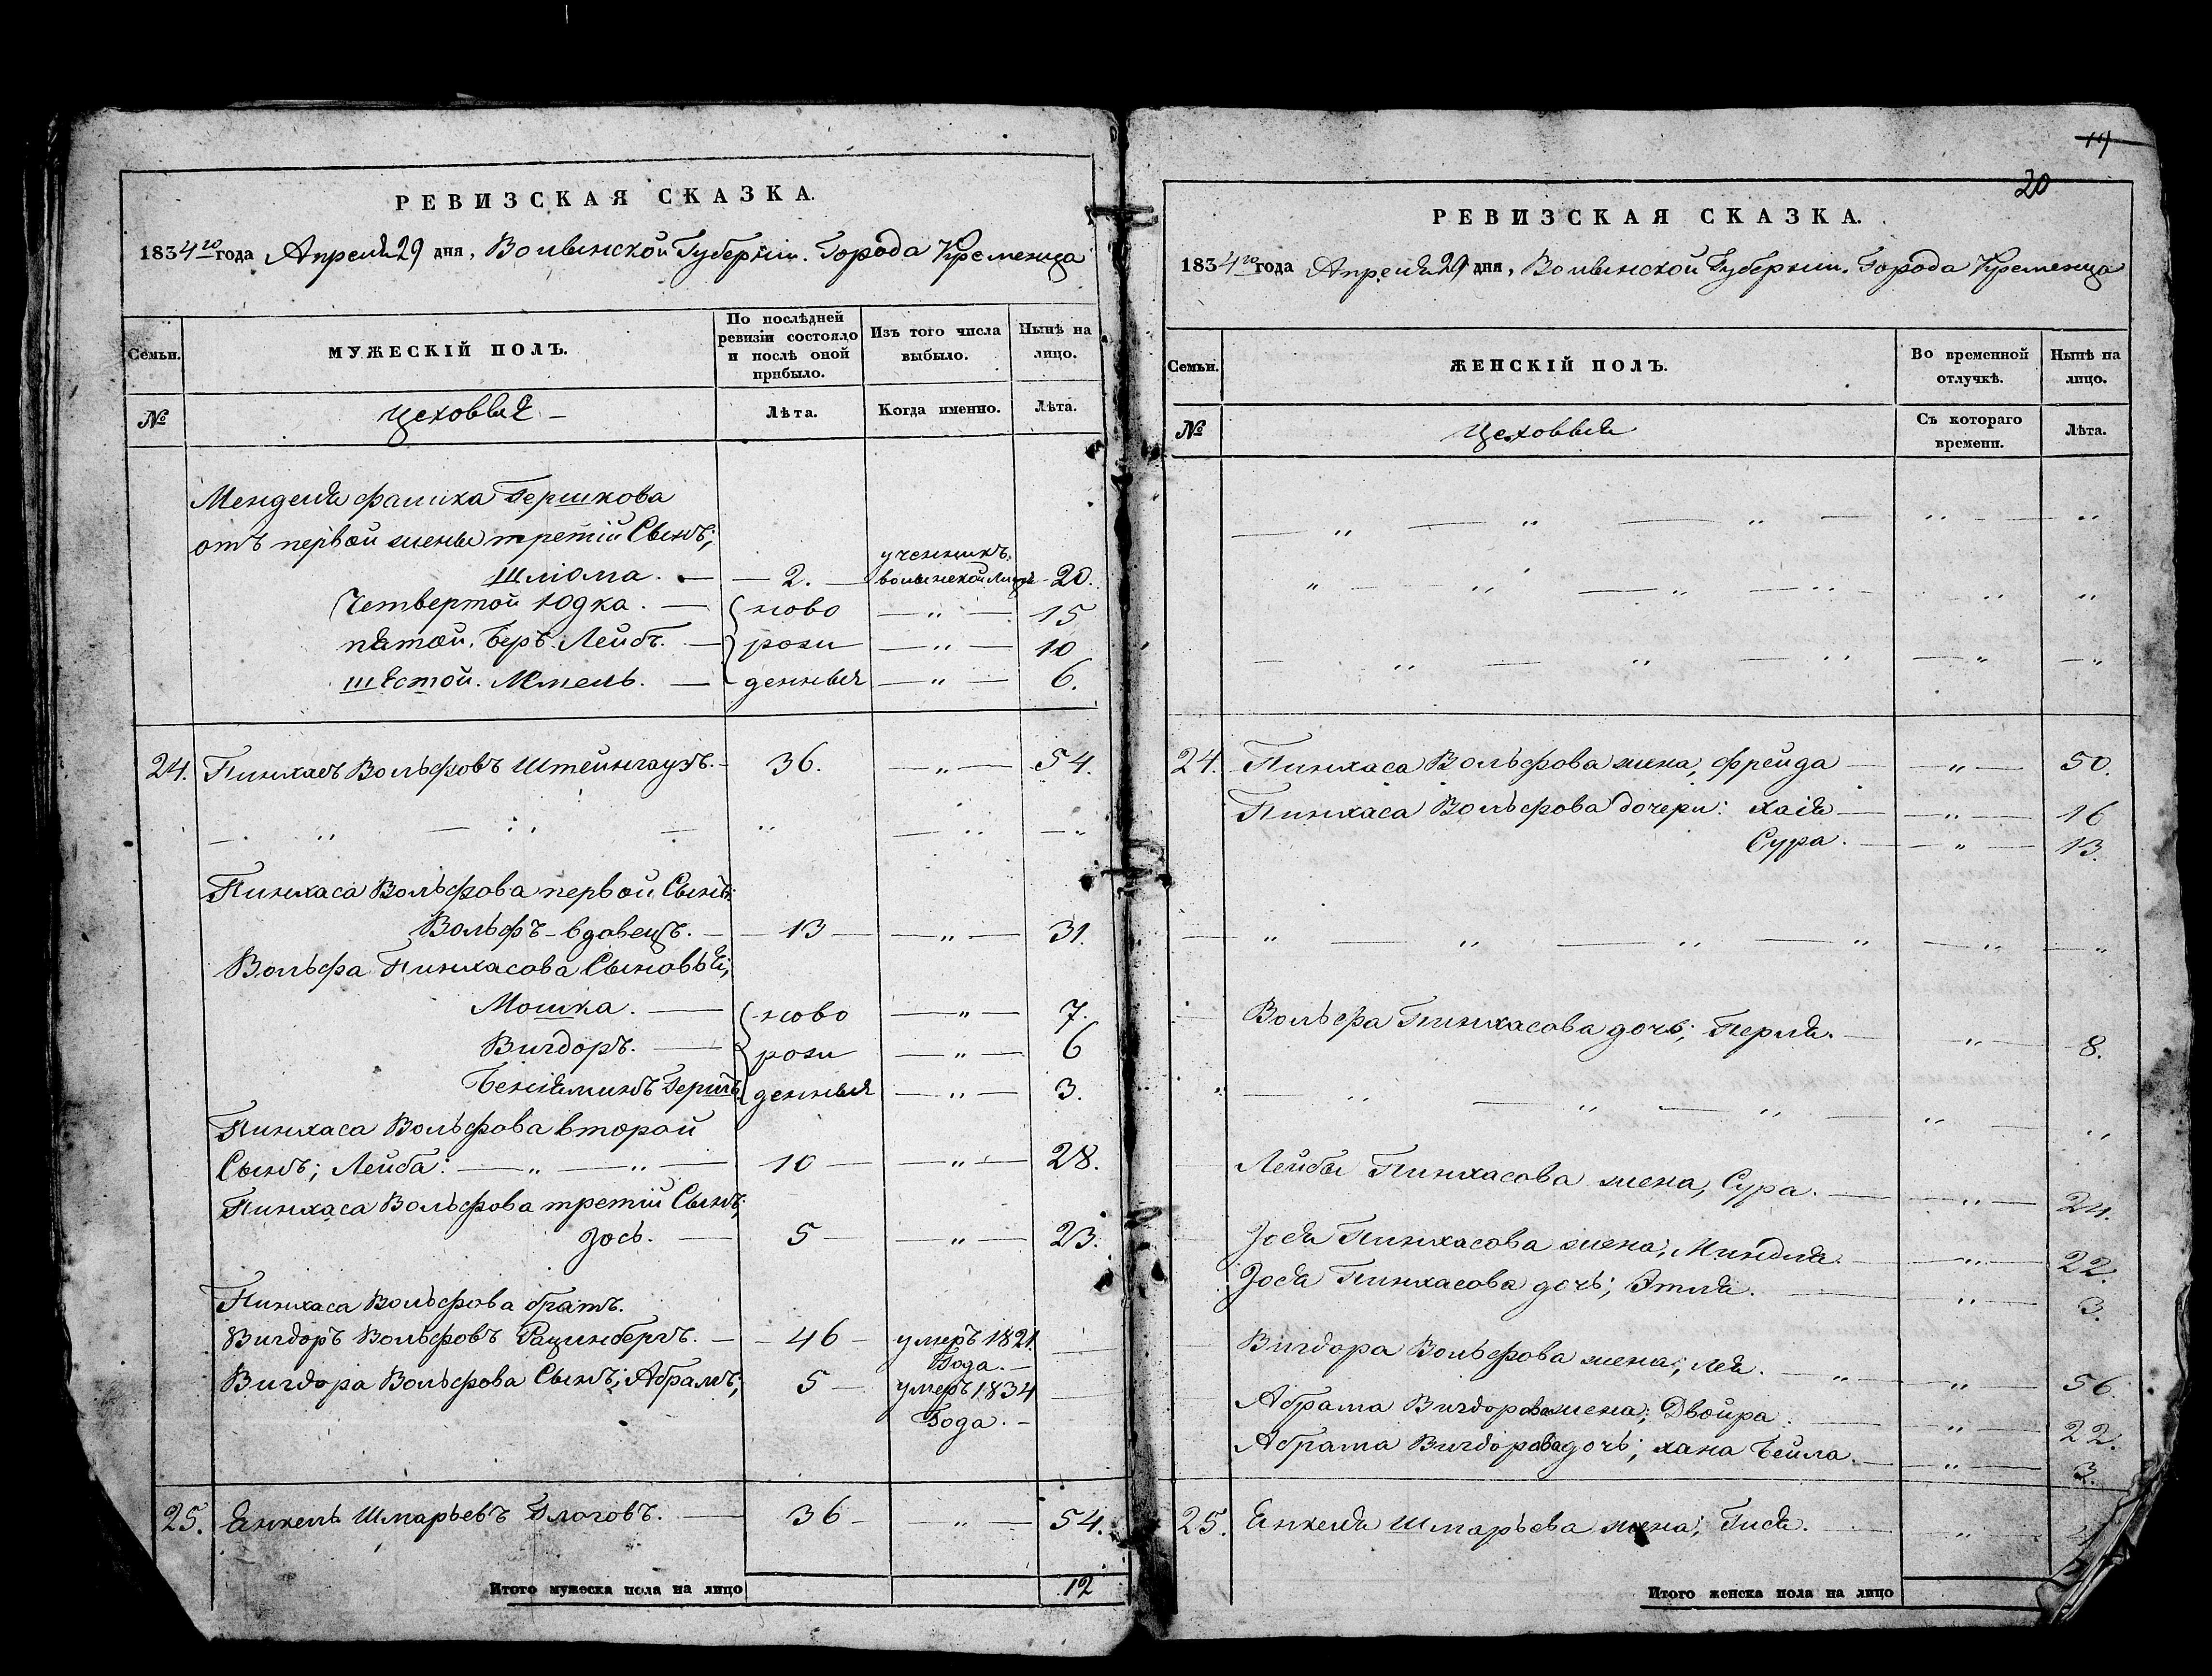 РЕВИЗСКАЯ СКАЗКА.
1834го года Апреля 29 дня, Волынской Губернии. Города Кременца
Семьи.
МУЖЕСКІЙ ПОЛЪ.
По послѣдней ревизіи состояло и послѣ оной прибыло.
Изъ того числа выбыло.
Нынѣ на лицо.
№
Цеховыя
Лѣта.
Когда именно.
Лѣта.
Менделя Гершкова
отъ первой жены третій Сынъ;
Шліома. — 2. — ученикъ волынской 20.
Четвертой Юдка. — ново — " — 15
пятой. Беръ Лейбъ. — рожи — " — 10
шестой. — денныя — " — 6.
24. Пинхасъ Вольфовъ Штейнгаузъ. 36. — " — 54.
Пинхаса Вольфова первой Сынъ:
Вольфъ - вдовецъ. — 13 — " — 31.
Вольфа Пинхасова Сыновья;
Мошка. — ново — " — 7.
Вигдоръ. — рожи — " — 6
Беніяминъ Гершъ. денныя — " — 3.
Пинхаса Вольфова второй
Сынъ; Лейба: — " — " — 10 — " — 28.
Пинхаса Вольфова третій Сынъ;
Іось. — 5 — " — 23.
Пинхаса Вольфова братъ.
Вигдоръ Вольфовъ — 46 — умеръ 1821. Года. —
Вигдора Вольфова Сынъ; Абрамъ; 5 — умеръ 1834 Года. —
25. Янкель Шмарьевъ — 36 — " — 54.
Итого мужеска пола на лицо 12
19
20
РЕВИЗСКАЯ СКАЗКА.
1834го года Апреля 29 дня, Волынской Губернии. Города Кременца
Семьи.
ЖЕНСКІЙ ПОЛЪ.
Во временной отлучкѣ.
Нынѣ на лицо.
№
Цеховыя
Съ котораго времени.
Лѣта.
24. Пинхаса Вольфова жена, Фрейда — " — 50.
Пинхаса Вольфова дочери: Хаія — " — 16
Сура. — " — 13.
Вольфа Пинхасова дочь; Перля. — " — 8.
Лейбы Пинхасова жена, Сура. — " — 24.
Іося Пинхасова жена; Миндля. — " — 22.
Іося Пинхасова дочь; Этля. — " — 3.
Вигдора Вольфова жена; Лея. — " — " — 56.
Абрама Вигдорова жена; Двойра. — " — 22.
Абрама Вигдорова дочь; Хана Бейла. — " — 3.
25. Янкеля Шмарьева жена; Гися. — "
Итого женска пола на лицо